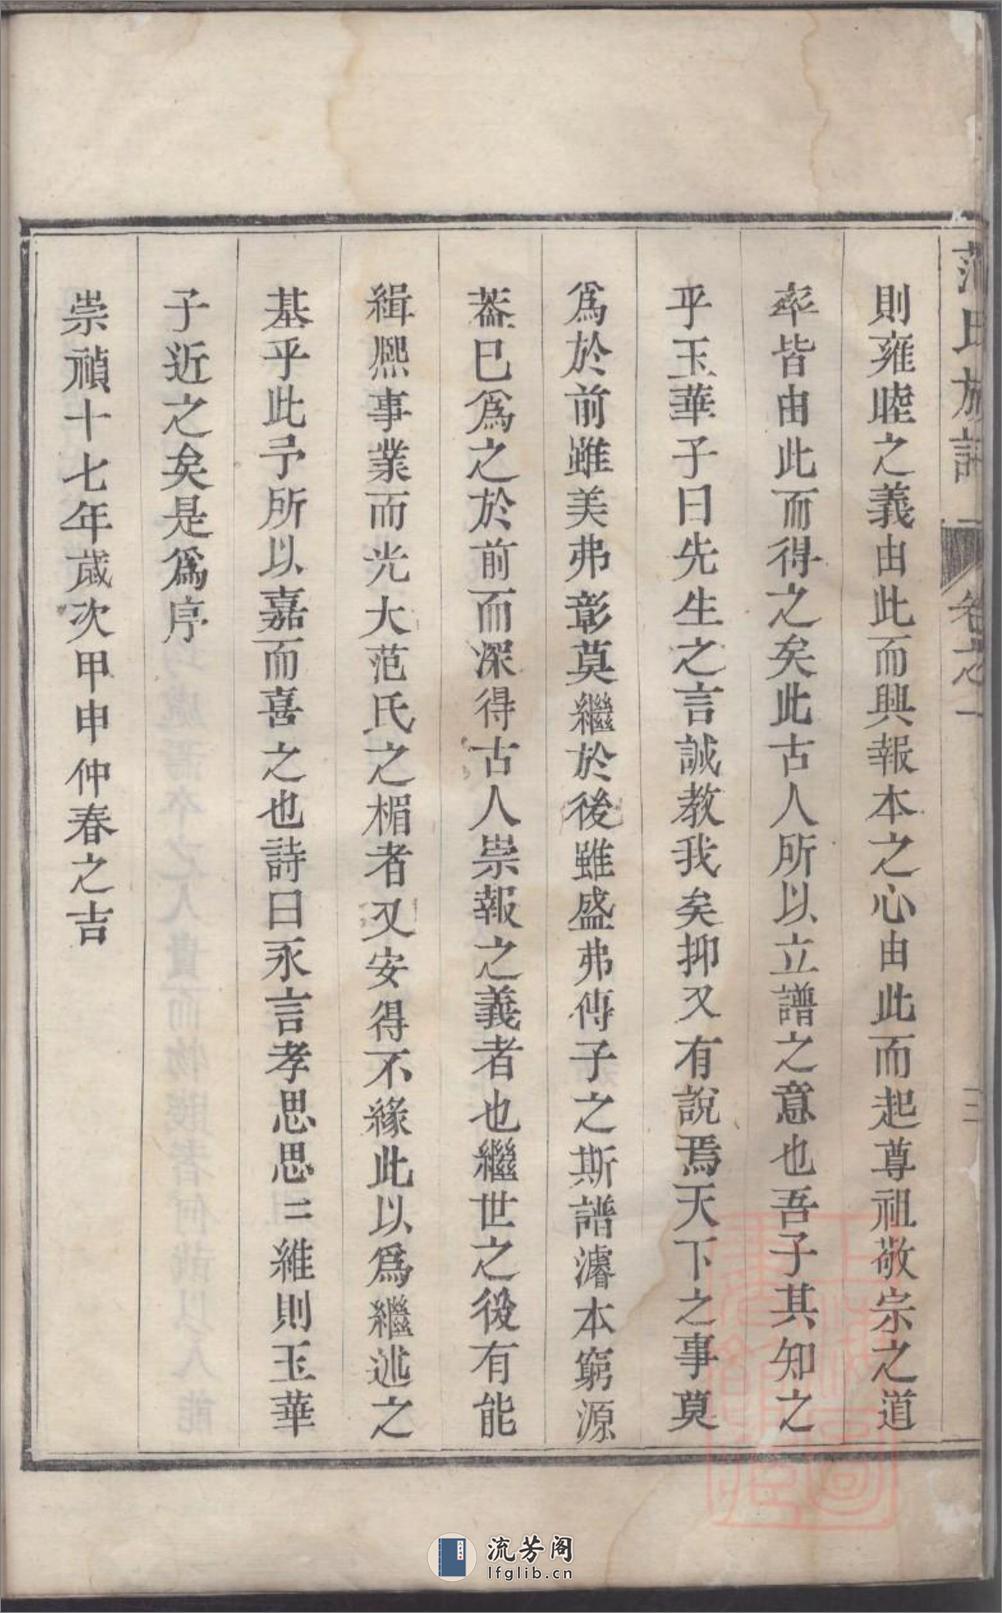 范氏族譜 卷之一 三
則雍睦之義由此而興報本之心由此而起尊祖敬宗之道
率皆由此而得之矣此古人所以立譜之意也吾子其知之
乎玉華子曰先生之言誠教我矣抑又有說焉天下之事莫
爲於前雖美弗彰莫繼於後雖盛弗傳子之斯譜濬本窮源
葢已爲之於前而深得古人崇報之義者也繼世之後有能
緝熙事業而光大范氏之楣者又安得不緣此以爲繼述之
基乎此予所以嘉而喜之也詩曰永言孝思思〻維則玉華
子近之矣是爲序
崇禎十七年歲次甲申仲春之吉
流芳阁
lfglib.cn